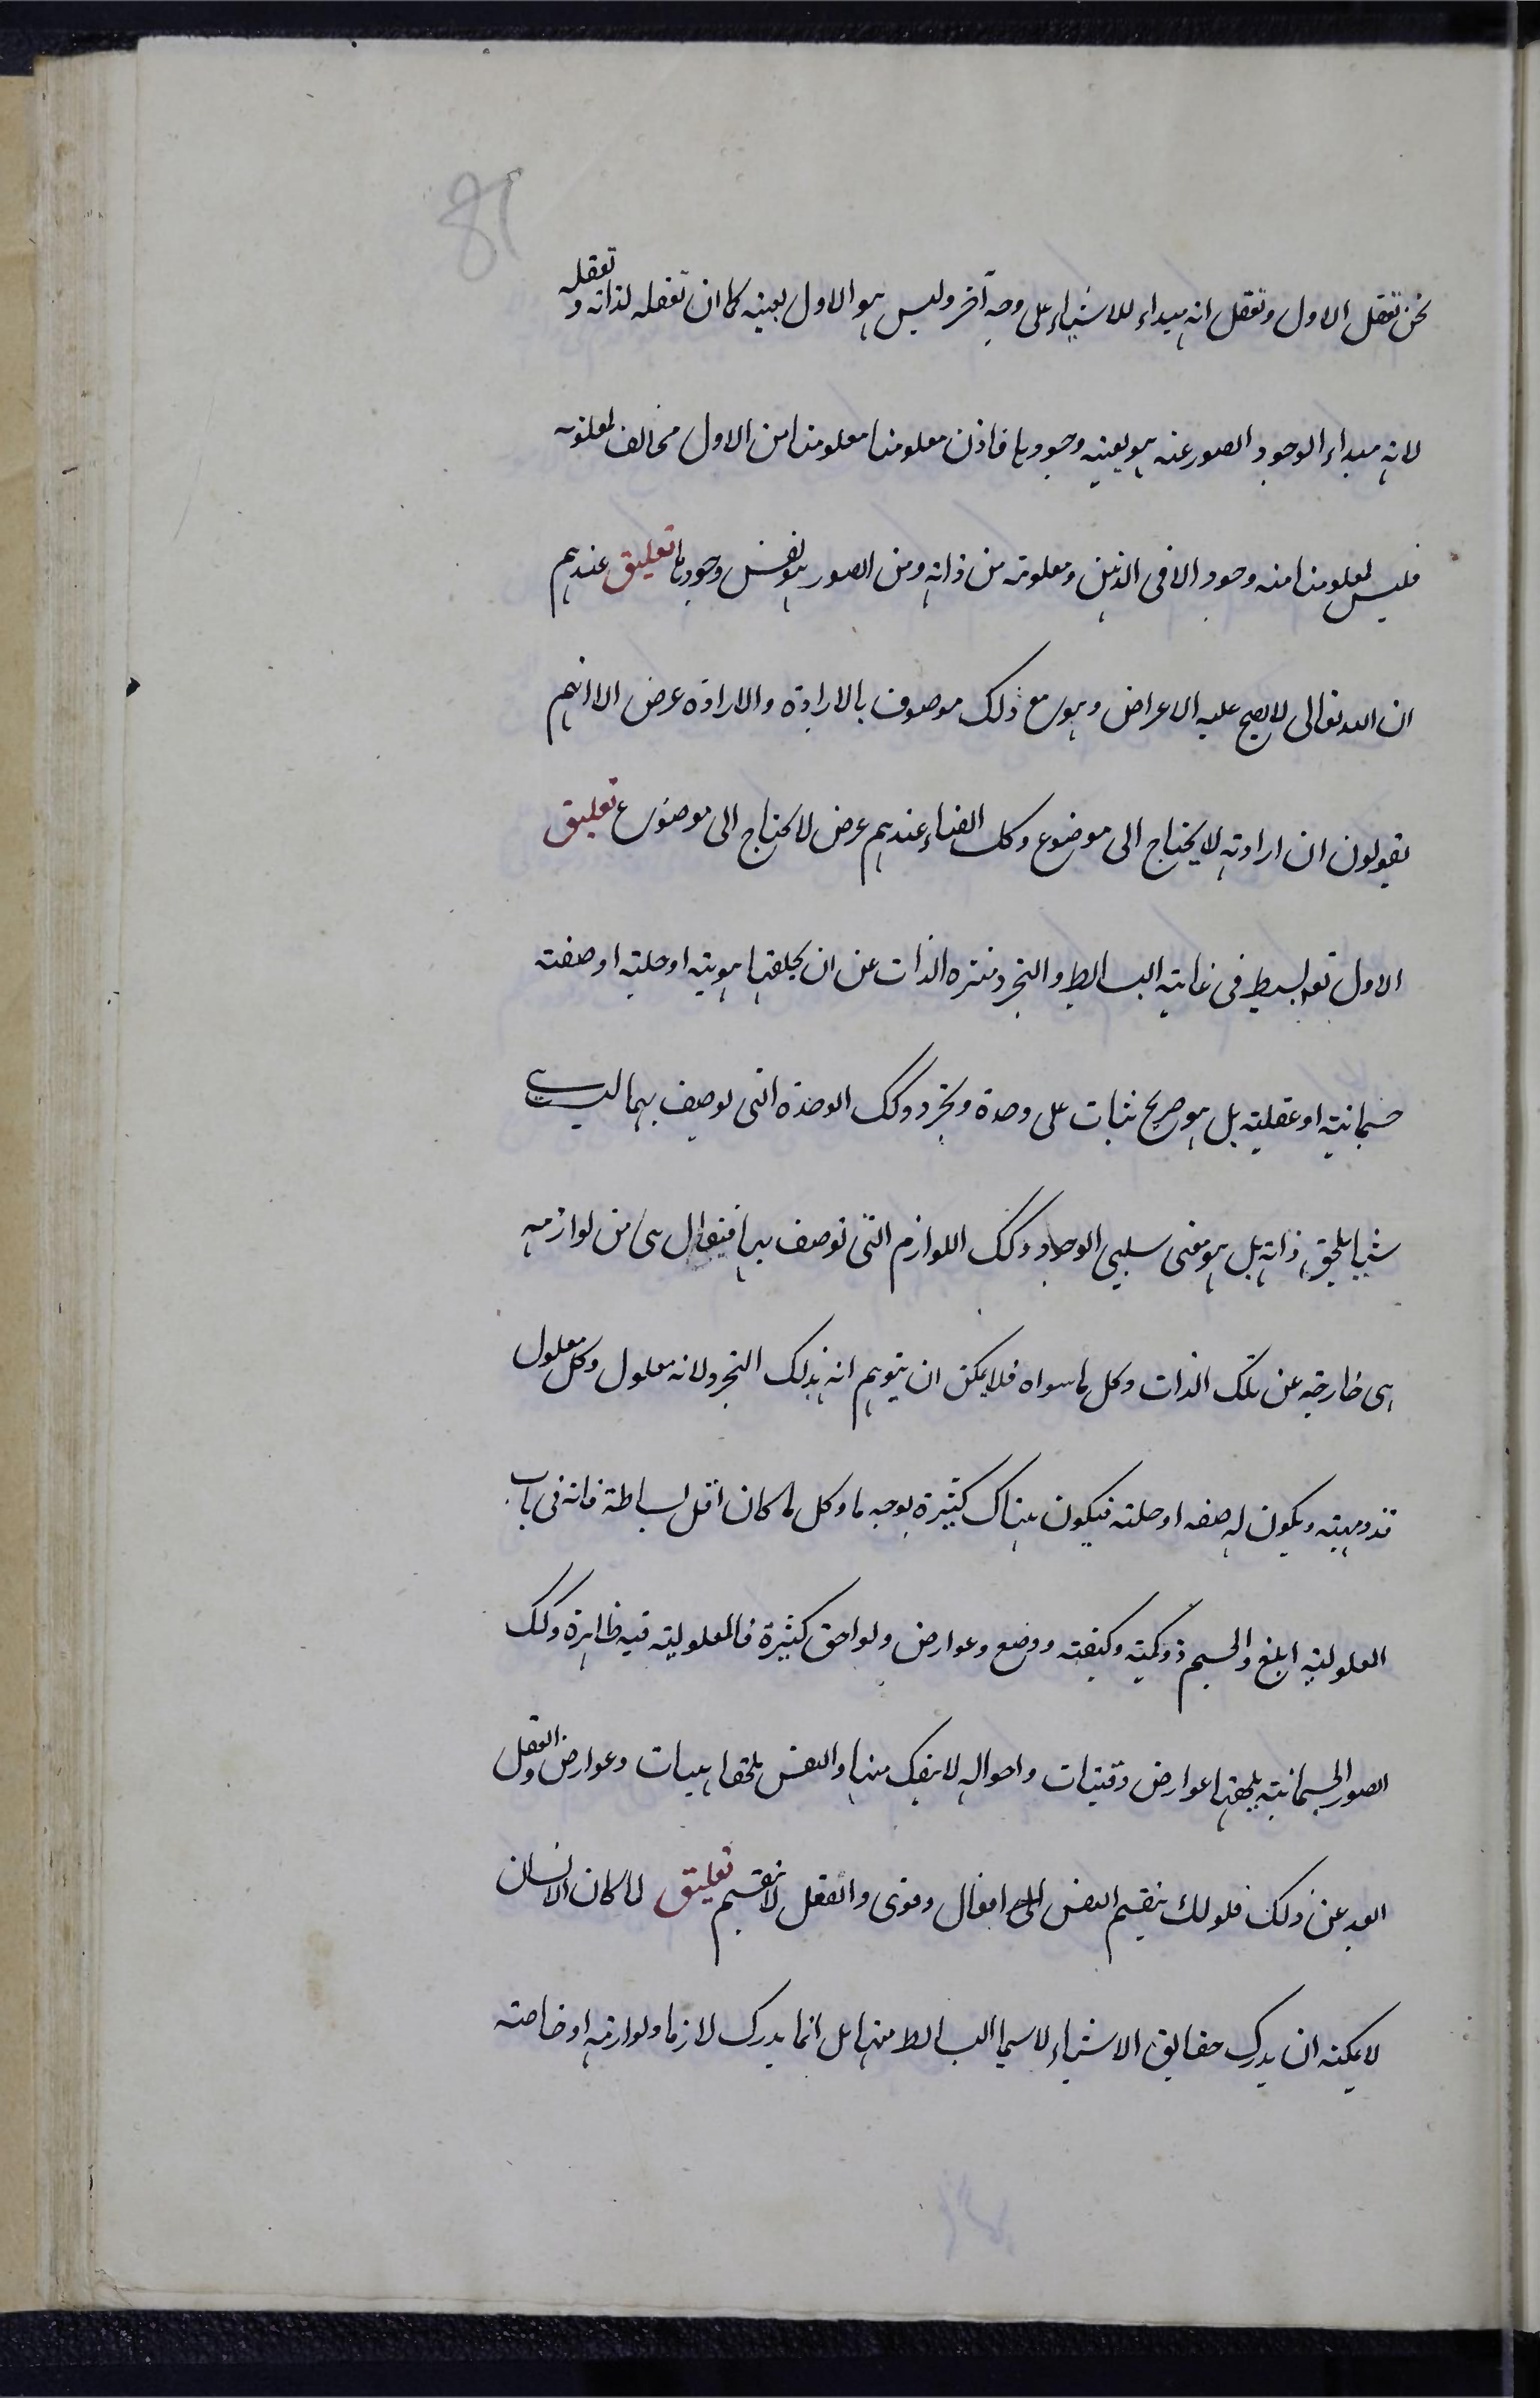 81
نحن نعقل الاول ونعقل انه مبداء للاشياء على وجه آخر وليس هو الاول بعينه كما ان تعقله لذاته و تعقله
لانه مبداء الوجود الصور عنه هو بعينه وجودها فاذن معلومنا معلومنا من الاول مخالف لمعلومه
فليس لمعلومنا منه وجود الا فى الذهن ومعلومه من ذاته ومن الصور هو نفس وجودها تعليق عندهم
ان الله تعالى لا يصح عليه الاعراض وهو مع ذلك موصوف بالارادة والارادة عرض الا انهم
يقولون ان ارادته لا يحتاج الى موضوع وكك الفناء عندهم عرض لا يحتاج الى موضوع تعليق
الاول تعه بسيط فى غاية البساطه والتجرد منزه الذات عن ان يلحقها هويته او حليته او صفته
جسمانية او عقلية بل هو صريح ثبات على وحدة وتجرد وكك الوحدة التى يوصف بها ليست
شيأ يلحق ذاته بل هو معنى سلبى الوجود وكك اللوازم التى توصف بها فيقال هى من لوازمه
هى خارجه عن تلك الذات وكل ما سواه فلا يمكن ان يتوهم انه بذلك التجرد لانه معلول وكل معلول
فذو مهية ويكون له صفه او حليته فيكون هناك كثيرة بوجه ما وكل ما كان اقل بساطة فانه فى باب
المعلولية ابلغ والجسم ذو كمية وكيفته ووضع وعوارض ولواحق كثيرة فالمعلولية فيه ظاهرة وكك
الصور الجسمانية يلحقها عوارض وقنيات واحواله لا ينفك منها والنفس يلحقها هيبات وعوارض والعقل
ابعد عن ذلك فلولك ينقسم النفس الى افعال وقوى والعقل لا ينقسم تعليق لما كان الانسان
لا يمكنه ان يدرك حقايق الاشياء لا سيما البسائط منها بل انما يدرك لازما ولوازمه او خاصته